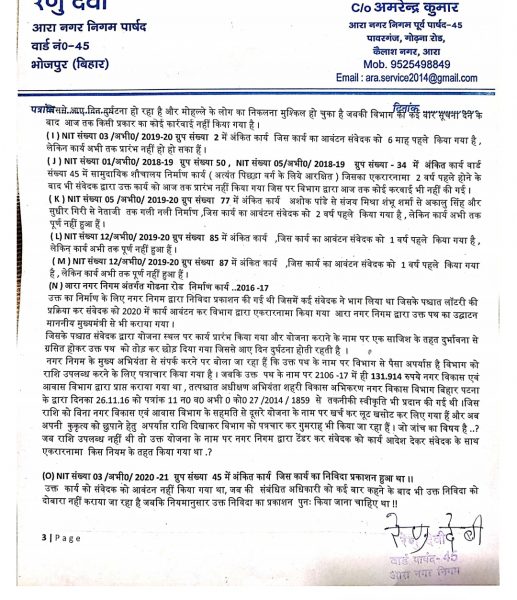 रेणु देवी
आरा नगर निगम पार्षद
वार्ड नं0-45
भोजपुर (बिहार)
C/o अमरेन्द्र कुमार
आरा नगर निगम पूर्व पार्षद-45
पावरगंज, गोढ़ना रोड,
कैलाश नगर, आरा
Mob. 9525498849
Email : ara.service2014@gmail.com
पत्रांक
दिनांक
जिससे आए दिन दुर्घटना हो रहा है और मोहल्ले के लोग का निकलना मुश्किल हो चुका है जबकी विभाग का कई बार सूचना देने के
बाद आज तक किसी प्रकार का कोई कार्रवाई नहीं किया गया है ।
( I ) NIT संख्या 03 /अभी0/ 2019-20 ग्रुप संख्या 2 में अंकित कार्य जिस कार्य का आवंटन संवेदक को 6 माह पहले किया गया है ,
लेकिन कार्य अभी तक प्रारंभ नहीं हो हो सका हैं ।
( J ) NIT संख्या 01/अभी0 / 2018-19 ग्रुप संख्या 50 , NIT संख्या 05/अभी0 / 2018-19 ग्रुप संख्या - 34 में अंकित कार्य वार्ड
संख्या 45 में सामुदायिक शौचालय निर्माण कार्य ( अत्यंत पिछड़ा वर्ग के लिये आरक्षित ) जिसका एकरारनामा 2 वर्ष पहले होने के
बाद भी संवेदक द्वारा उक्त कार्य को आज तक प्रारंभ नहीं किया गया जिस पर विभाग द्वारा आज तक कोई करवाई भी नहीं की गई ।
( K ) NIT संख्या 05 /अभी0/ 2019-20 ग्रुप संख्या 77 में अंकित कार्य अशोक पांडे से संजय मिश्रा शंभू शर्मा से अकालु सिंह और
सुधीर गिरी से नेताजी तक गली नली निर्माण ,जिस कार्य का आवंटन संवेदक को 2 वर्ष पहले किया गया है , लेकिन कार्य अभी तक
पूर्ण नहीं हुआ हैं ।
( L) NIT संख्या 12/अभी0/ 2019-20 ग्रुप संख्या 85 में अंकित कार्य ,जिस कार्य का आवंटन संवेदक को 1 वर्ष पहले किया गया है ,
लेकिन कार्य अभी तक पूर्ण नहीं हुआ हैं ।
( M ) NIT संख्या 12/अभी0/ 2019-20 ग्रुप संख्या 87 में अंकित कार्य ,जिस कार्य का आवंटन संवेदक को 1 वर्ष पहले किया गया
है , लेकिन कार्य अभी तक पूर्ण नहीं हुआ हैं ।
(N) आरा नगर निगम अंतर्गत गोढना रोड निर्माण कार्य ..2016 -17
उक्त का निर्माण के लिए नगर निगम द्वारा निविदा प्रकाशन की गई थी जिसमें कई संवेदक ने भाग लिया था जिसके पश्चात लॉटरी की
प्रक्रिया कर संवेदक को 2020 में कार्य आवंटन कर विभाग द्वारा एकरारनामा किया गया था उक्त पथ का उद्घाटन
माननीय मुख्यमंत्री से भी कराया गया ।
जिसके पश्चात संवेदक द्वारा योजना स्थल पर कार्य प्रारंभ किया गया और योजना कराने के नाम पर एक साजिश के तहत दुर्भावना से
ग्रसित होकर उक्त पथ को तोड़ कर छोड़ दिया गया जिससे आए दिन दुर्घटना होती रहती है ।
नगर निगम के मुख्य अभियंता से संपर्क करने पर बोला जा रहा हैं कि उक्त पथ के नाम पर विभाग से पैसा अपर्याप्त है विभाग को
राशि उपलब्ध करने के लिए पत्राचार किया गया है । जबकि उक्त पथ के नाम पर 2106 -17 में ही 131.914 रुपये नगर विकास एवं
आवास विभाग द्वारा प्राप्त कराया गया था , तत्पश्चात अधीक्षण अभियंता शहरी विकास अभिकरण नगर विकास विभाग बिहार पटना
के द्वारा दिनका 26.11.16 को पत्रांक 11 न0 व0 अभी 0 को0 27 /2014 / 1859 से तकनीकी स्वीकृति भी प्रदान की गई थी ।जिस
राशि को विना नगर विकास एवं आवास विभाग के सहमति से दूसरे योजना के नाम पर खर्च कर लूट खसोट कर लिए गया हैं और अब
अपनी कुकृत्य को छुपाने हेतु अपर्याप्त राशि दिखाकर विभाग को पत्रचार कर गुमराह भी किया जा रहा हैं । जो जांच का विषय है ..?
जब राशि उपलब्ध नहीं थी तो उक्त योजना के नाम पर नगर निगम द्वारा टेंडर कर संवेदक को कार्य आदेश देकर संवेदक के साथ
एकरारनामा किस नियम के तहत किया गया था .?
(O) NIT संख्या 03 /अभी0/ 2020 -21 ग्रुप संख्या 45 में अंकित कार्य जिस कार्य का निविदा प्रकाशन हुआ था ।।
उक्त कार्य को संवेदक को आवंटन नहीं किया गया था, जब की संबंधित अधिकारी को कई बार कहने के बाद भी उक्त निविदा को
दोबारा नहीं कराया जा रहा है जबकि नियमानुसार उक्त निविदा का प्रकाशन पुनः किया जाना चाहिए था !!
3 | P a g e
रेणु देवी
रेणु देवी
वार्ड पार्षद- 45
आरा नगर निगम